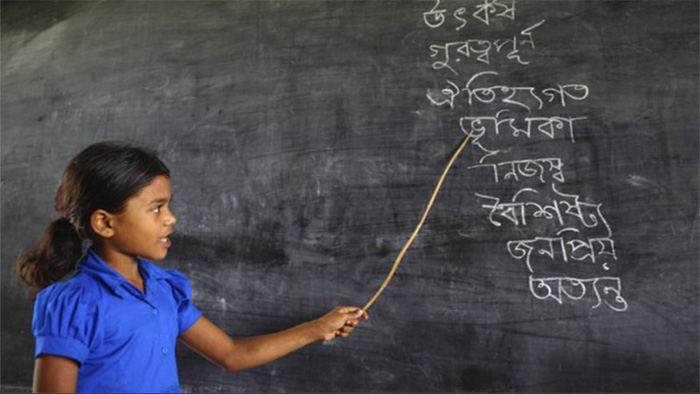 উৎকর্ষ
গুরুত্বপূর্ন
ঐতিহ্যগত
ভূমিকা
নিজস্ব
বৈশিষ্ট্য
জনপ্রিয়
অত্যন্ত